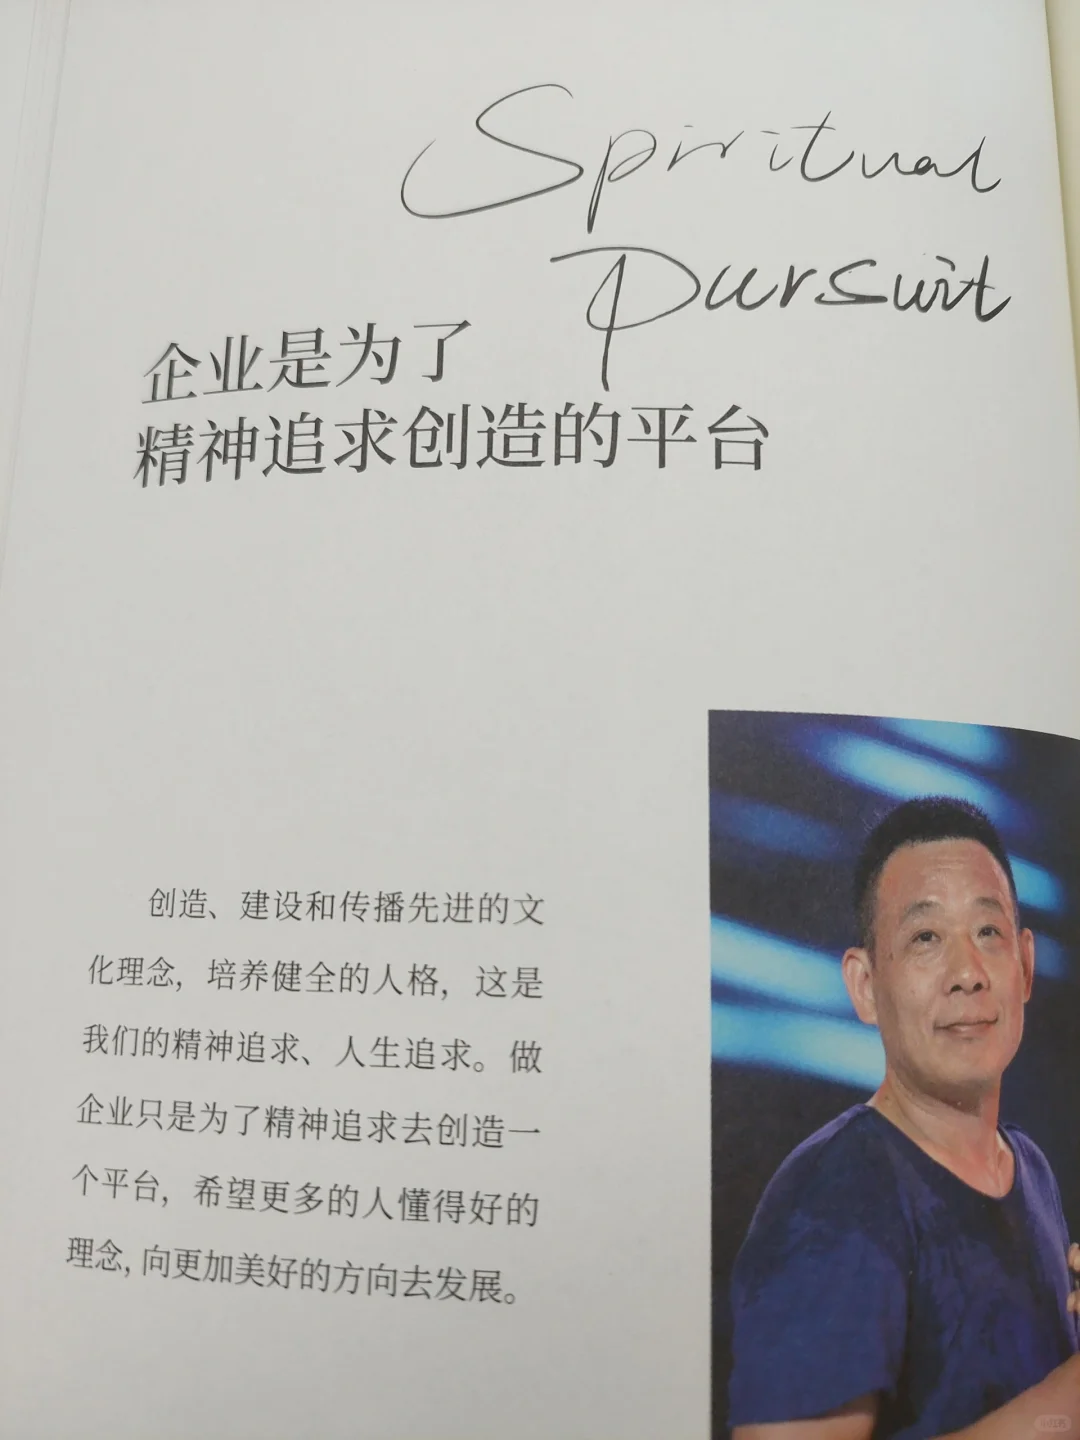 Spiritual
Pursuit
企业是为了
精神追求创造的平台
创造、建设和传播先进的文
化理念，培养健全的人格，这是
我们的精神追求、人生追求。做
企业只是为了精神追求去创造一
个平台，希望更多的人懂得好的
理念，向更加美好的方向去发展。
小红书